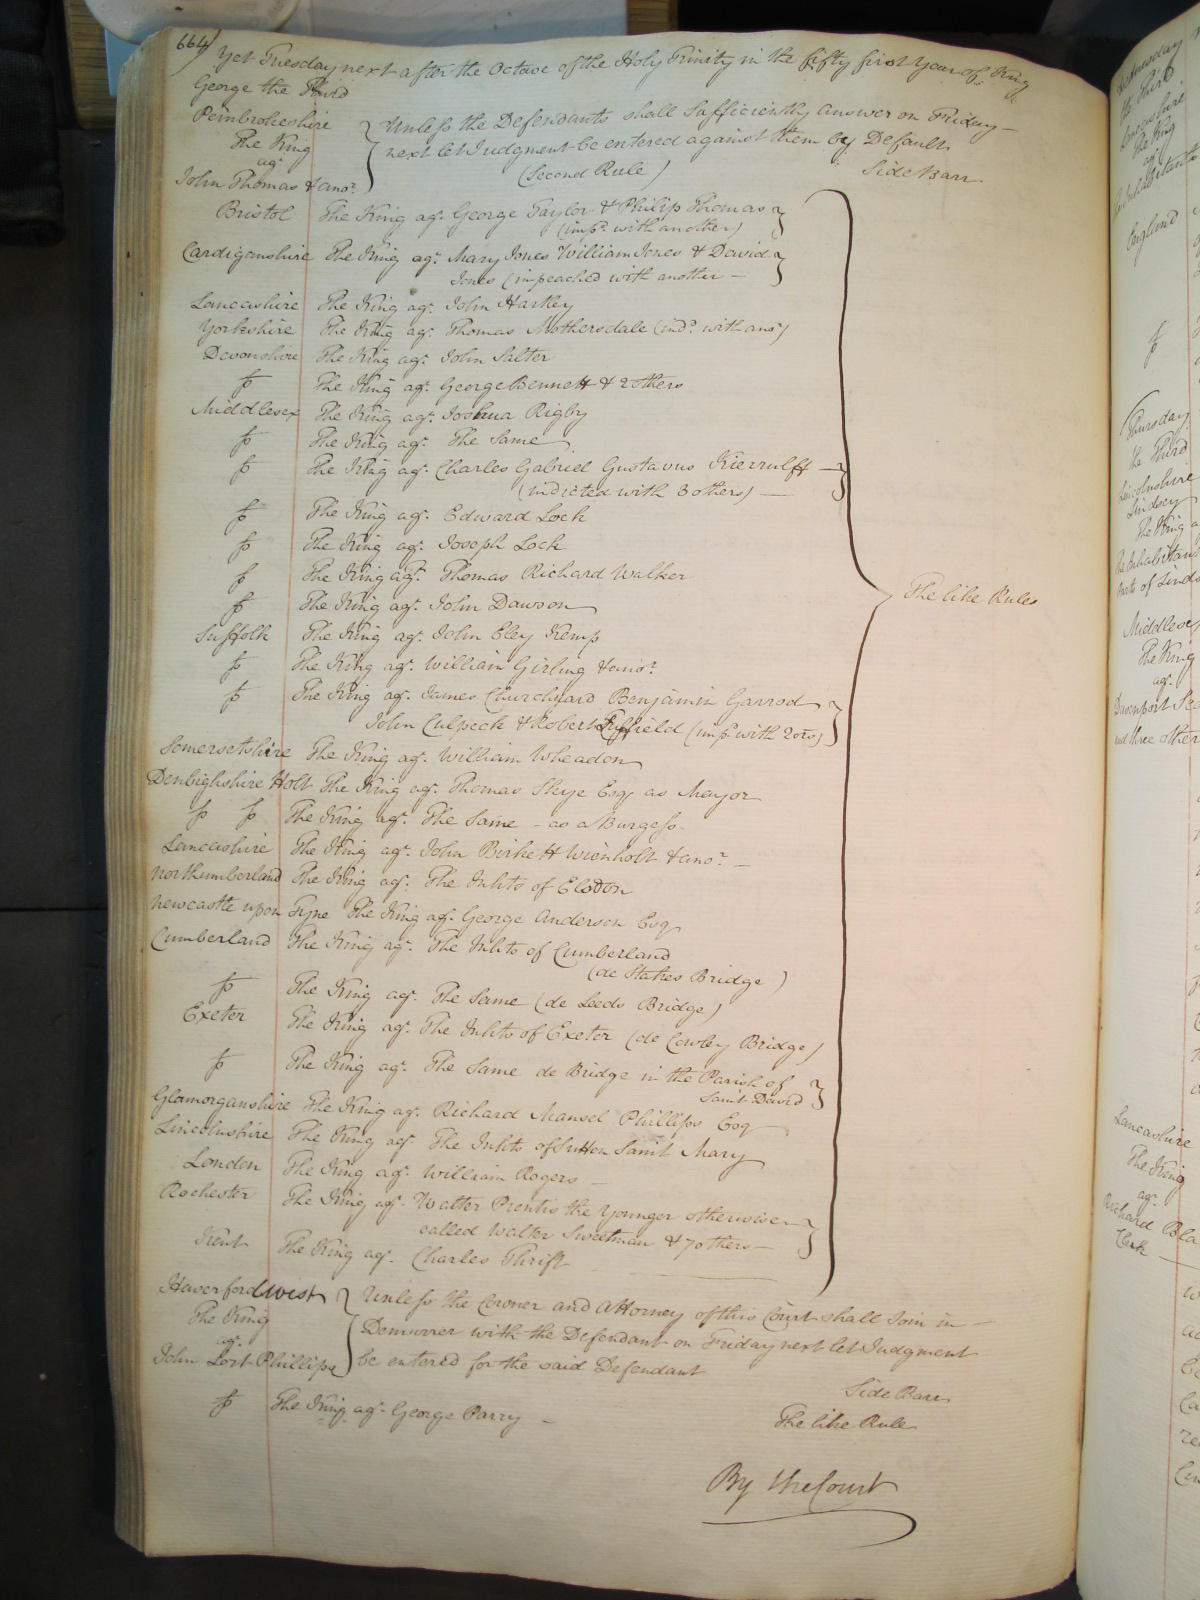 664
Yet Tuesday next after the Octave of the Holy Trinity in the fifty first Year of King
George the Third
Pembrokeshire
The King
agt
John Thomas & anor.
Unless the Defendants shall sufficiently answer on Friday
next let Judgment be entered against them by Default
(Second Rule)
Side Barr
Bristol The King agt. George Taylor & Philip Thomas
(impd. with another)
Cardiganshire The King agt. Mary Jones William Jones & David
Jones (impeached with another
Lancashire The King agt. John Hartley
Yorkshire The King agt. Thomas Mothersdale (indd. with anor)
Devonshire The King agt. John Salter
fs The King agt. George Bennett & 2 others
Middlesex The King agt. Joshua Rigby
fs The King agt. The Same
fs The King agt. Charles Gabriel Gustavus Kierrulff
(indicted with 3 others)
fs The King agt. Edward Lock
fs The King agt. Joseph Lock
fs The King agt. Thomas Richard Walker
fs The King agt. John Dawson
The like Rules
Suffolk The King agt. John Eley Kemp
fs The King agt. William Girling & anor.
fs The King agt. James Churchyard Benjamin Garrod
John Culpeck & Robert (imp. with 2 ors)
Somersetshire The King agt. William Wheadon
Denbighshire Holt The King agt. Thomas Skye Esq as Mayor
fs fs The King agt. The Same - as a Burgess
Lancashire The King agt. John Birkett Wienholt & anor.
Northumberland The King agt. The Inhts of Elsdon
Newcastle upon Tyne The King agt. George Anderson Esq
Cumberland The King agt. The Inhts of Cumberland
(de Stakes Bridge)
fs The King agt. The Same (de Leeds Bridge)
Exeter The King agt. The Inhts of Exeter (de Cowley Bridge)
fs The King agt. The Same de Bridge in the Parish of
Saint David
Glamorganshire The King agt. Richard Mansel Phillips Esq
Lincolnshire The King agt The Inhts of Sutton Saint Mary
London The King agt. William Rogers
Rochester The King agt. Walter Prentis the Younger otherwise
called Walter Sweetman & 7 others
Kent The King agt. Charles Thrift
Haverfordwest
The King
agt.
John Lort Phillips
Unless the Coroner and Attorney of this Court shall Join in
Demurrer with the Defendant on Friday next let Judgment
be entered for the said Defendant
Side Barr
fs The King agt George Parry
The like Rule
By the Court
Thursday
the Third
Lincolnshire
Lindsey
The King
Middlesex
The King
agt.
and three other
Lancashire
The King
agt.
Richard
Clerk